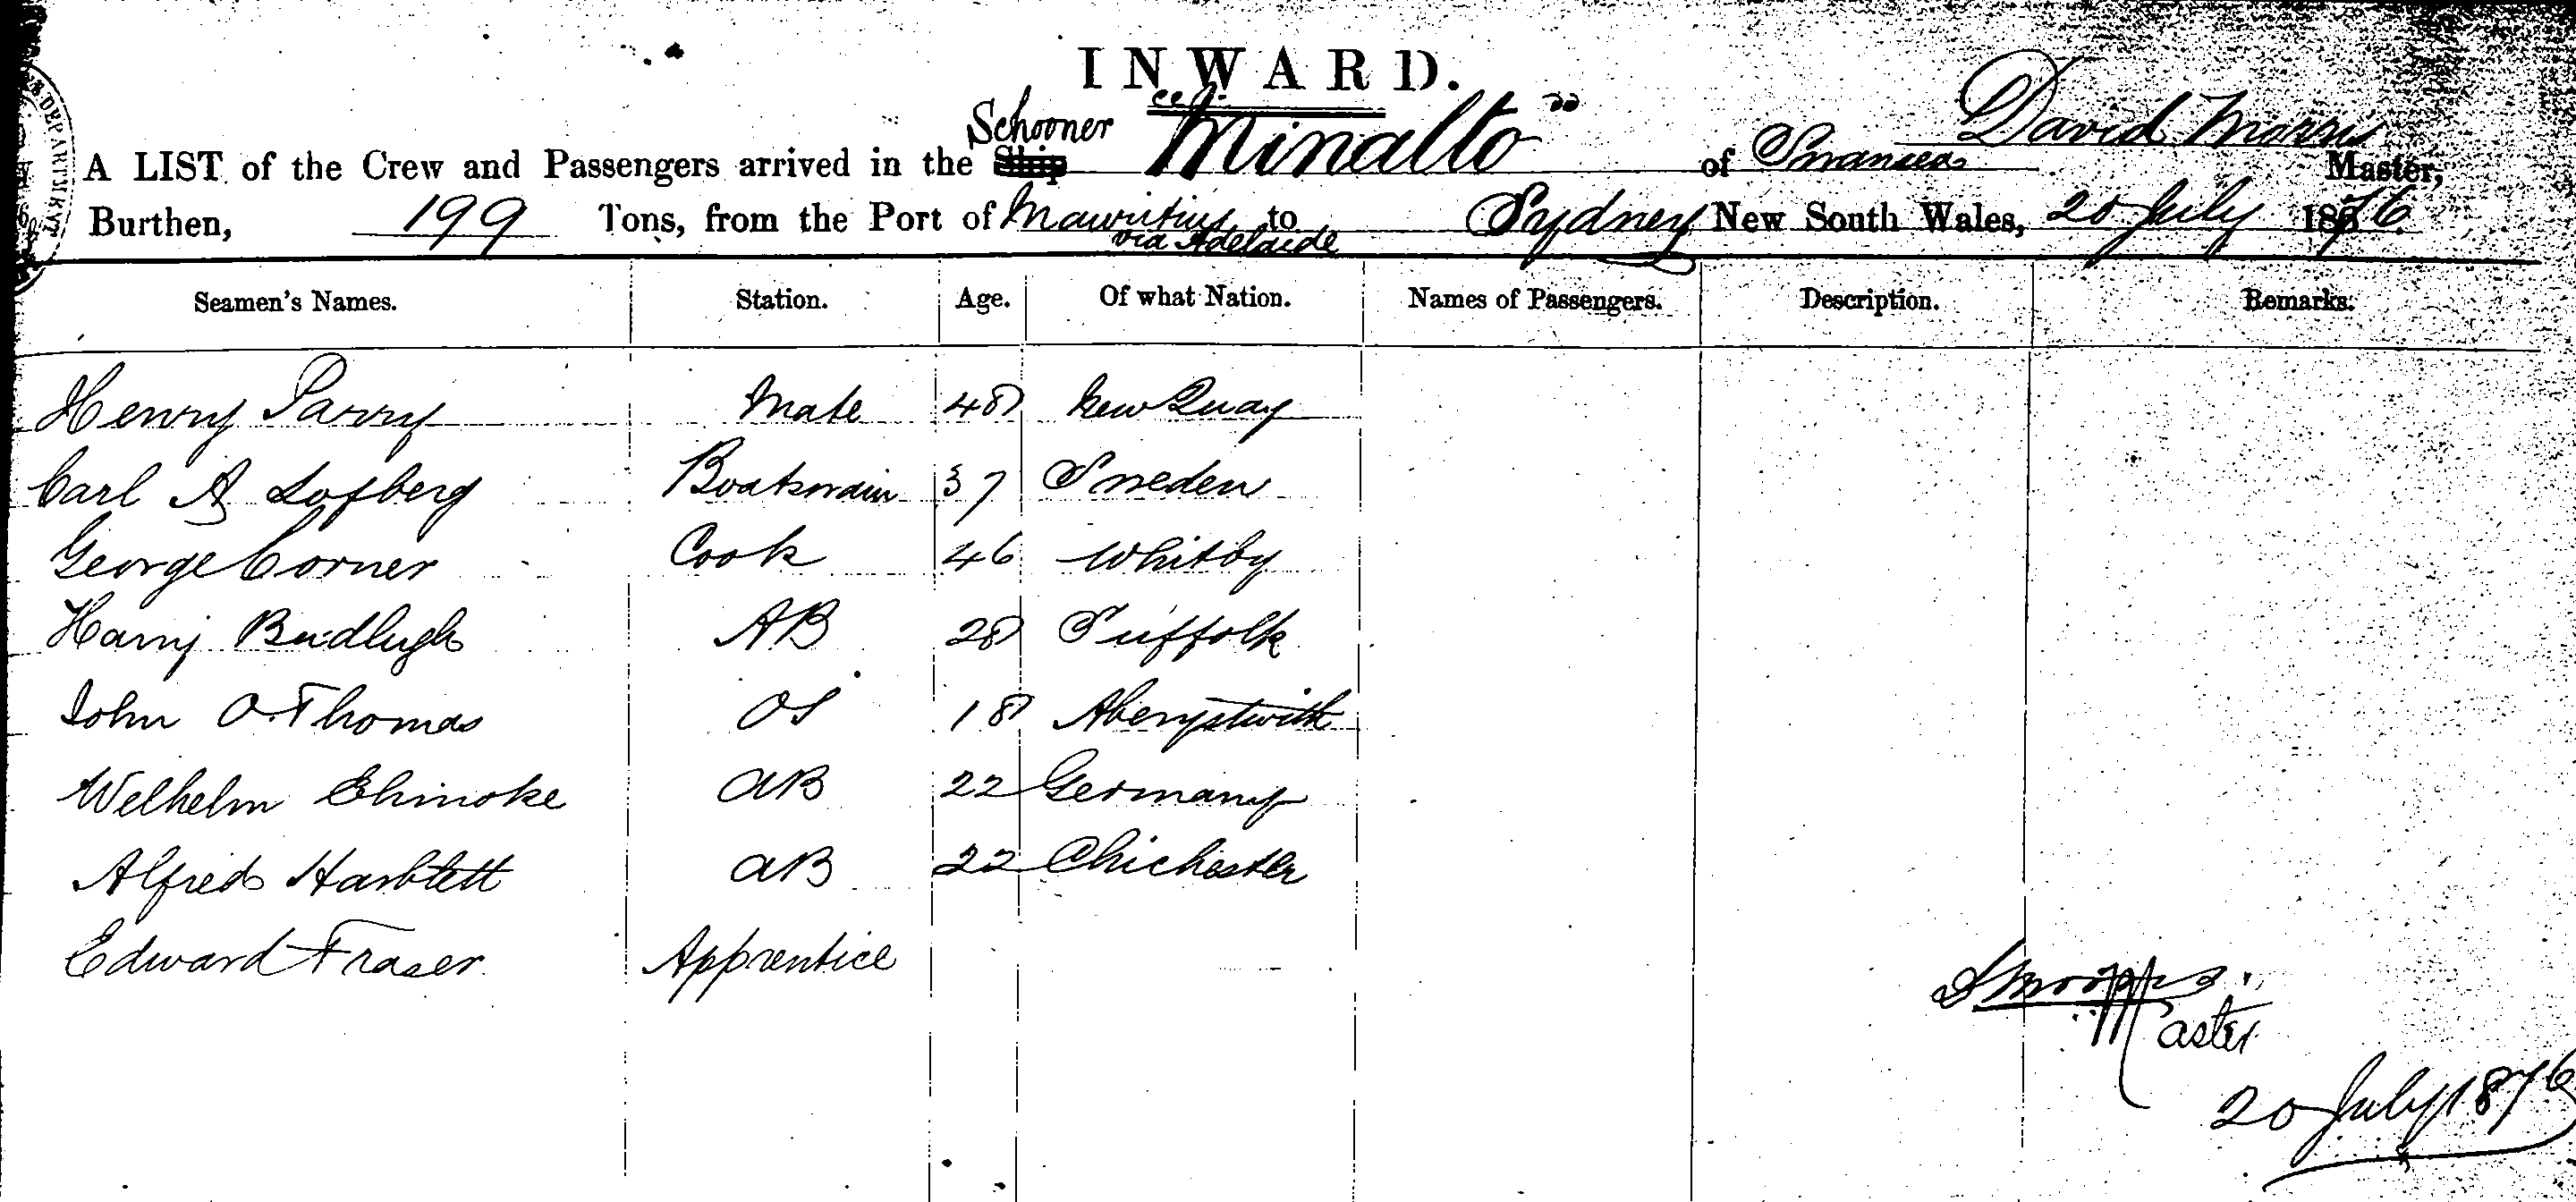 INWARD.
DEPARTMENT
A LIST of the Crew and Passengers arrived in the Ship Schooner "Minalto" of Swansea David Morris Master,
Burthen, 199 Tons, from the Port of Mauritius via Adelaide to Sydney New South Wales, 20 July 1876.
Seamen's Names. Station. Age. Of what Nation. Names of Passengers. Description. Remarks.
Henry Parry Mate 48 New Quay
Carl A Lofberg Boatswain 37 Sweden
George Corner Cook 46 Whitby
Harry AB 28 Suffolk
John O. Thomas OS 18 Aberystwith
Welhelm AB 22 Germany
Alfred AB 22 Chichester
Edward Fraser Apprentice
Master
20 July 1876